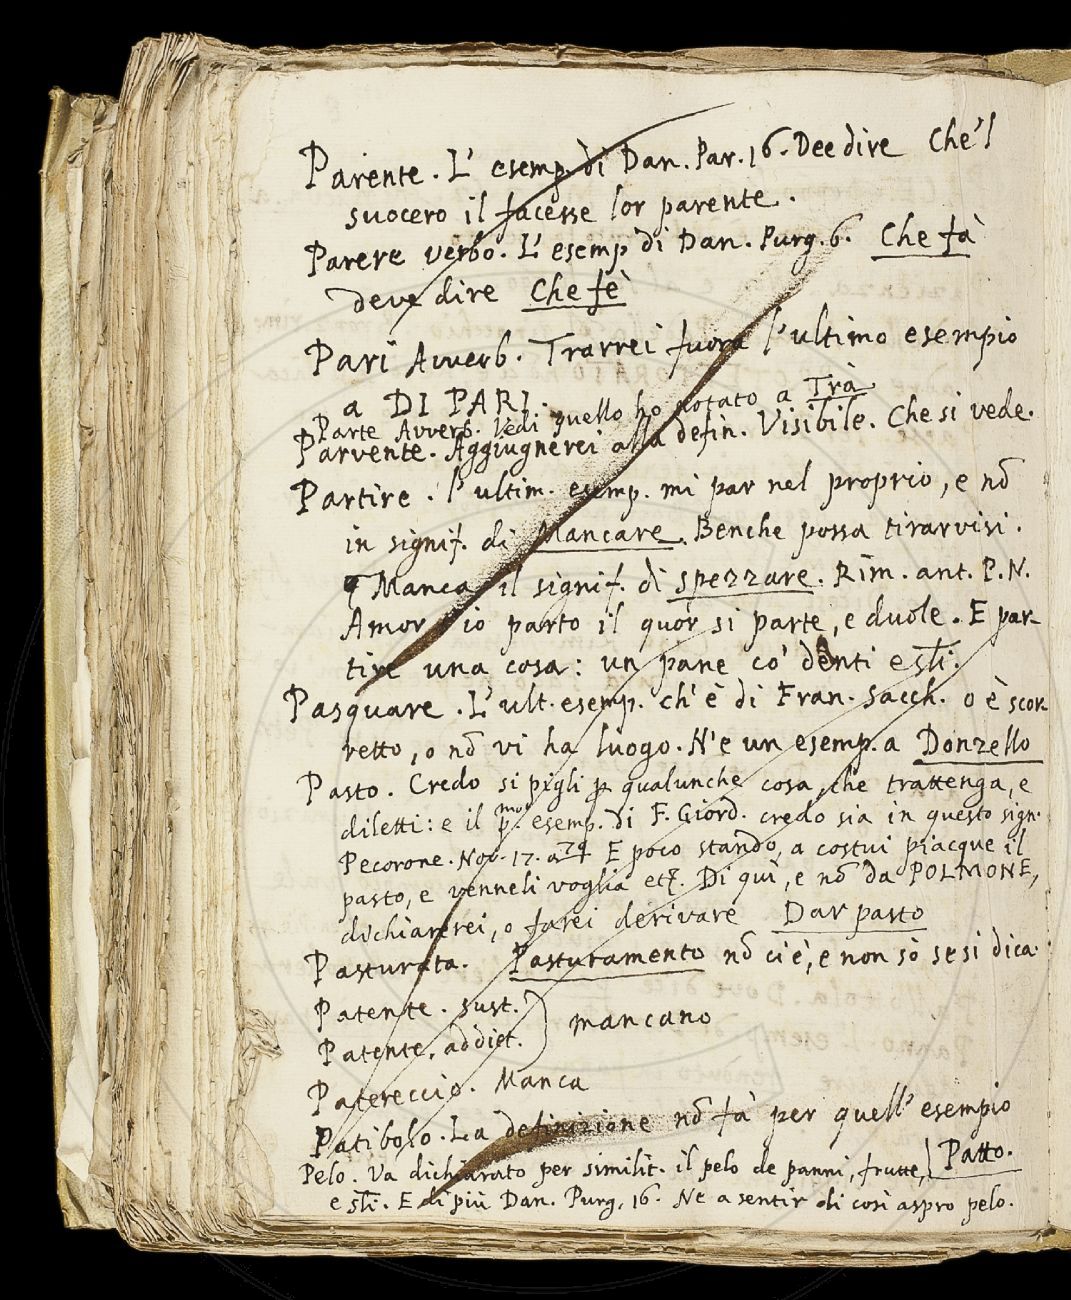 Parente. L' esemp. di Dan. Par. 16. Dee dire Che'l
suocero il facesse lor parente.
Parere verbo. L' esemp di Dan. Purg. 6. Che fà
deve dire Che fè
Pari Avverb. Trarrei fuora l'ultimo esempio
a DI PARI.
Parte Avverb. Vedi quello ho notato a Trà
Parvente. Aggiugnerei alla defin. Visibile. Che si vede.
Partire. l'ultim. esemp. mi par nel proprio, e nō
in signif. di Mancare. Benche possa tirarvisi.
¶ Manca il signif. di spezzare. Rim. ant. P. N.
Amor io parto il quor si parte, e duole. E par-
tire una cosa: un pane co' denti e sīli.
Pasquare. L' ult. esemp. ch' è di Fran. Sacch. o è scor
retto, o nō vi ha luogo. N'e un esemp. a Donzello
Pasto. Credo si pigli ꝑ qualunche cosa, che trattenga, e
diletti: e il pmo. esemp. di F. Giord. credo sia in questo sign.
Pecorone. Nov. 17. E poco stando, a costui piacque il
pasto, e venneli voglia etc. Di qui, e nō da POLMONE,
dichiarerei, o farei derivare Dar pasto
Pasturata. Pasturamento nō ci è, e non sò se si dica.
Patente. sust.
Patente. addiet. } mancano
Patereccio. Manca
Patibolo. La definizione nō fà per quell' esempio
Pelo. Va dichiarato per similit. il pelo de panni, frutte, | Patto.
e sīli. E di più Dan. Purg. 16. Ne a sentir di così aspro pelo.